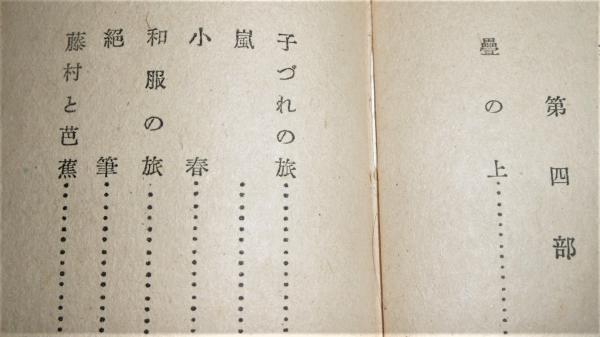 第四部
疊の上
子づれの旅
嵐
小春
和服の旅
絕筆
藤村と芭蕉